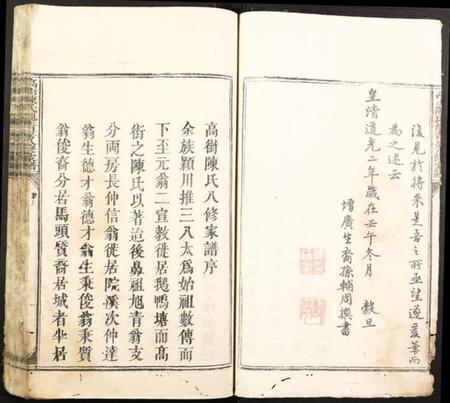 復見於將來是吾之所亟望遂爰筆而
為之述云
皇清道光二年歲在壬午冬月 穀旦
增廣生裔孫輔周撰書
高街陳氏八修家譜序
余族潁川推三八太爲始祖數傳而
下至元翁二宣教徙居鵝鴨塘而高
街之陳氏以著迨後鼻祖旭青翁支
分兩房長仲信翁徙居院溪次仲達
翁生德才翁德才翁生秉俊翁秉質
翁俊裔分居馬頭質裔居城者半居